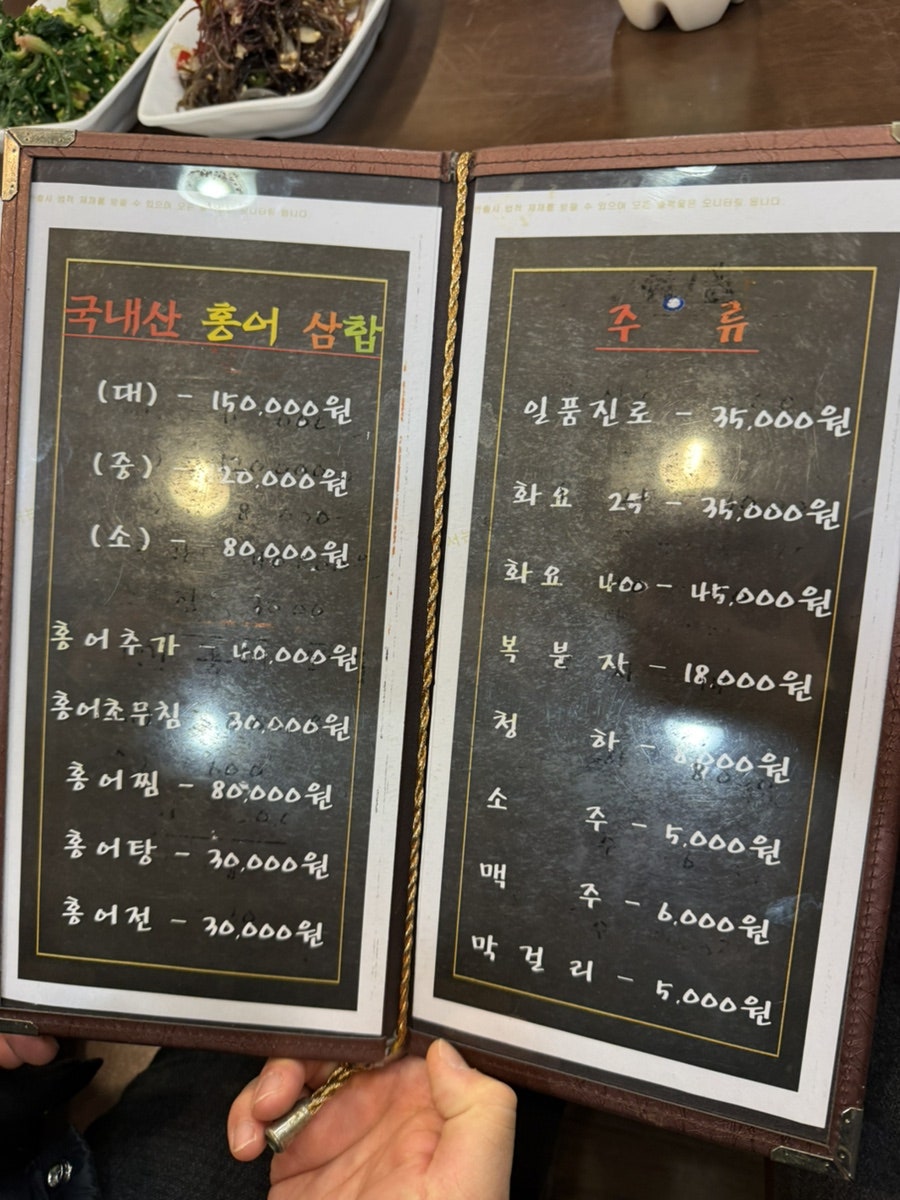 국내산 홍어 삼합
(대) - 150,000원
(중) - 120,000원
(소) - 80,000원
홍어추가 - 40,000원
홍어초무침 - 30,000원
홍어찜 - 80,000원
홍어탕 - 30,000원
홍어전 - 30,000원
주 류
일품진로 - 35,000원
화요 25 - 35,000원
화요 400 - 45,000원
복분자 - 18,000원
청하 -
소주 - 5,000원
맥주 - 6,000원
막걸리 - 5,000원